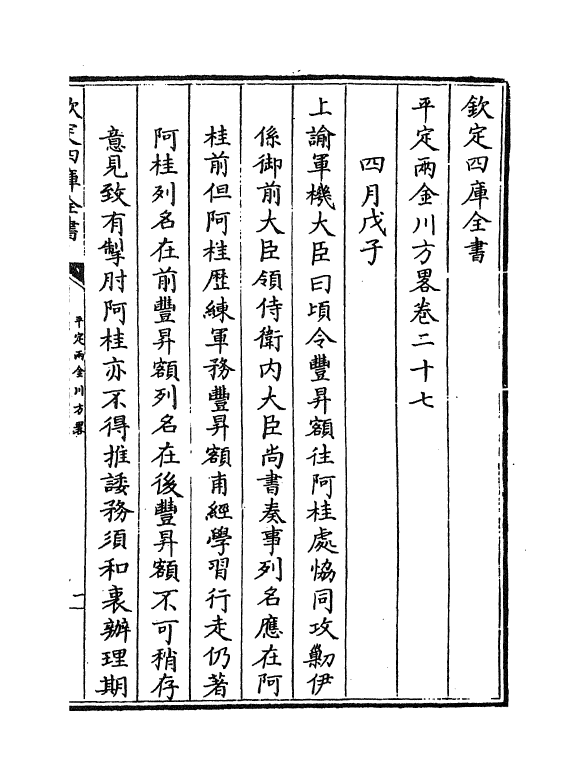 欽定四庫全書
平定兩金川方畧卷二十七
四月戊子
上諭軍機大臣曰頃令豐昇額往阿桂處恊同攻勦伊
係御前大臣領侍衛内大臣尚書奏事列名應在阿
桂前但阿桂歴練軍務豐昇額甫經學習行走仍著
阿桂列名在前豐昇額列名在後豐昇額不可稍存
意見致有掣肘阿桂亦不得推諉務須和衷辦理期
欽定四庫全書
平定兩金川方畧
一